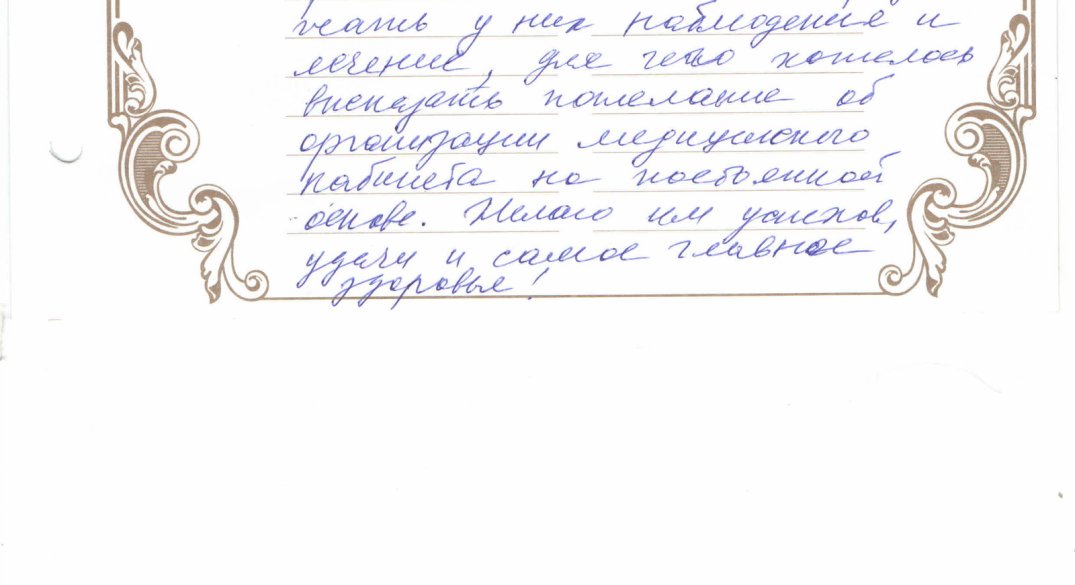 жать у них наблюдения и
лечение, для чего хотелось
высказать пожелание об
организации медицинского
кабинета на постоянной
основе. Желаю им успехов,
удачи и самое главное
здоровья!